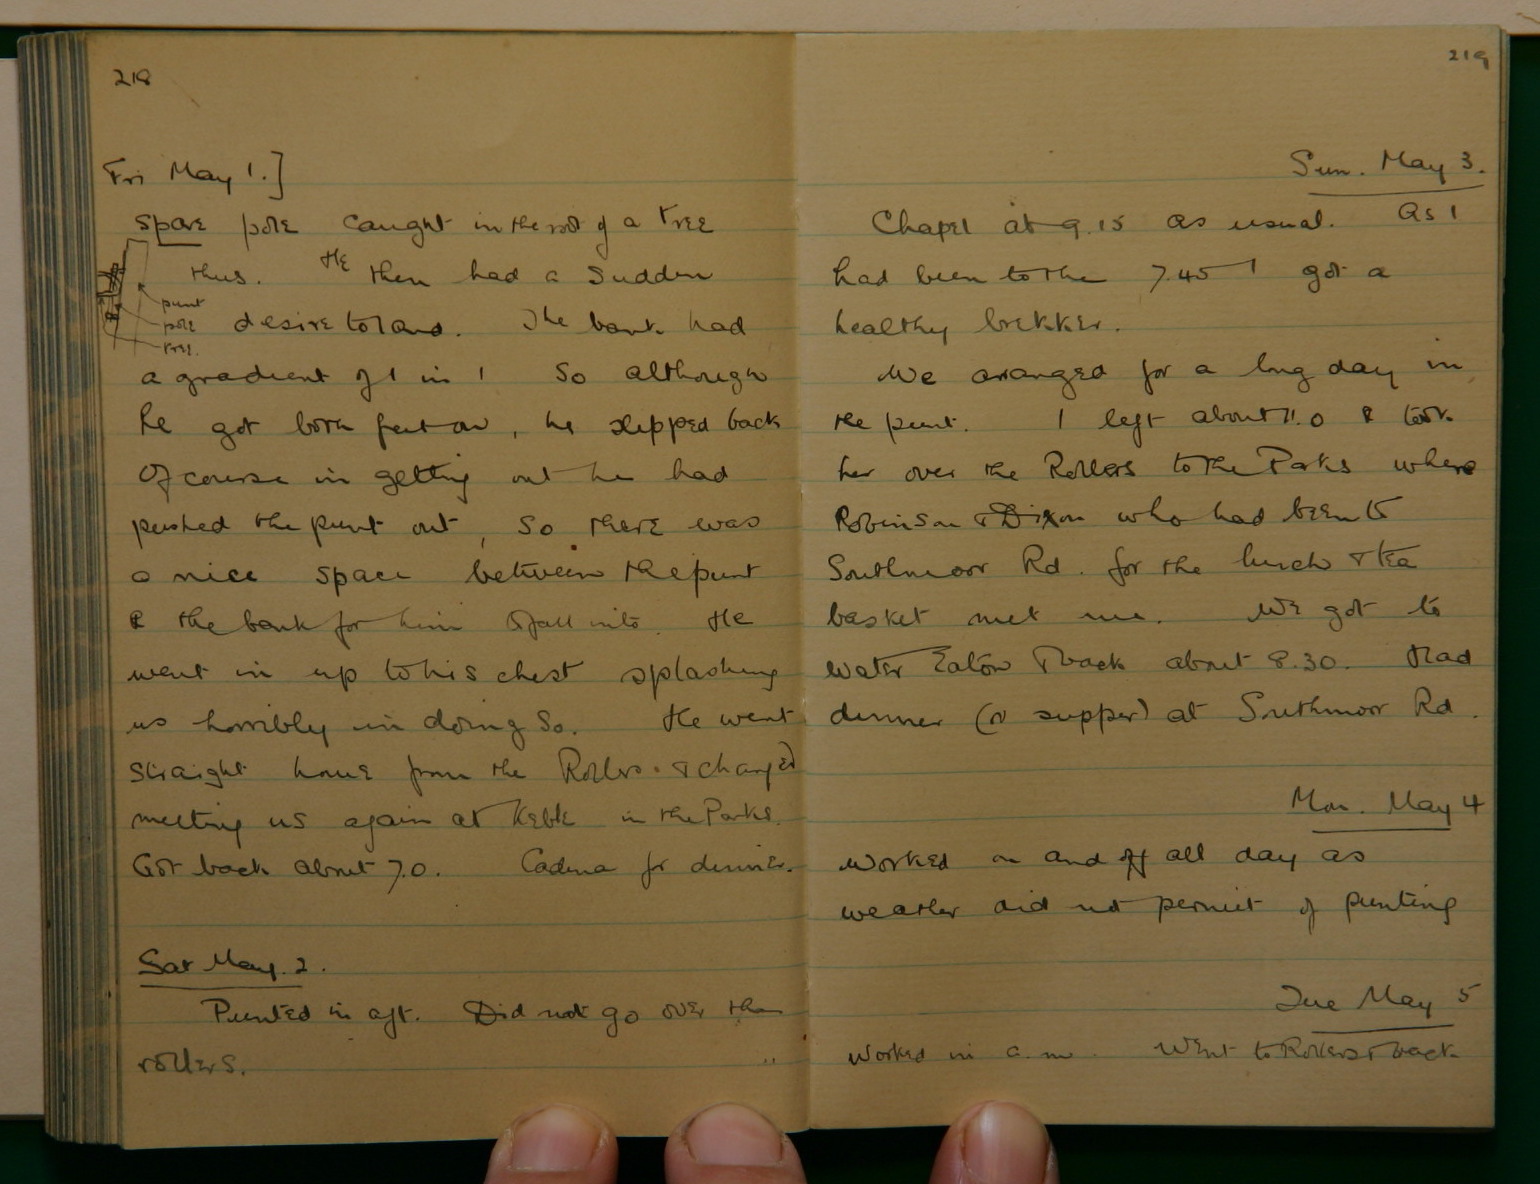 218
Fri May 1.]
spare pole caught in the root of a tree
thus. He then had a sudden
punt
pole
tree.
desire to land. The bank had
a gradient of 1 in 1 So although
he got both feet on, he slipped back
Of course in getting out he had
pushed the punt out, so there was
a nice space between the punt
& the bank for him to fall into. He
went in up to his chest splashing
us horribly in doing so. He went
straight home from the Rollers & changed
meeting us again at Keble in the Parks.
Got back about 7.0. Cadena for dinner.
Sat May. 2.
Punted in aft. Did not go over the
rollers.
219
Sun. May 3.
Chapel at 9.15 as usual. As I
had been to the 7.45 I got a
healthy brekker.
We arranged for a long day in
the punt. I left about 11.0 & took
her over the Rollers to the Parks where
Robinson & Dixon who had been to
Southmoor Rd. for the lunch & tea
basket met me. We got to
Water Eaton & back about 8.30. Had
dinner (or supper) at Southmoor Rd.
Mon. May 4
Worked on and off all day as
weather did not permit of punting
Tue May 5
Worked in a.m. Went to Rollers & back